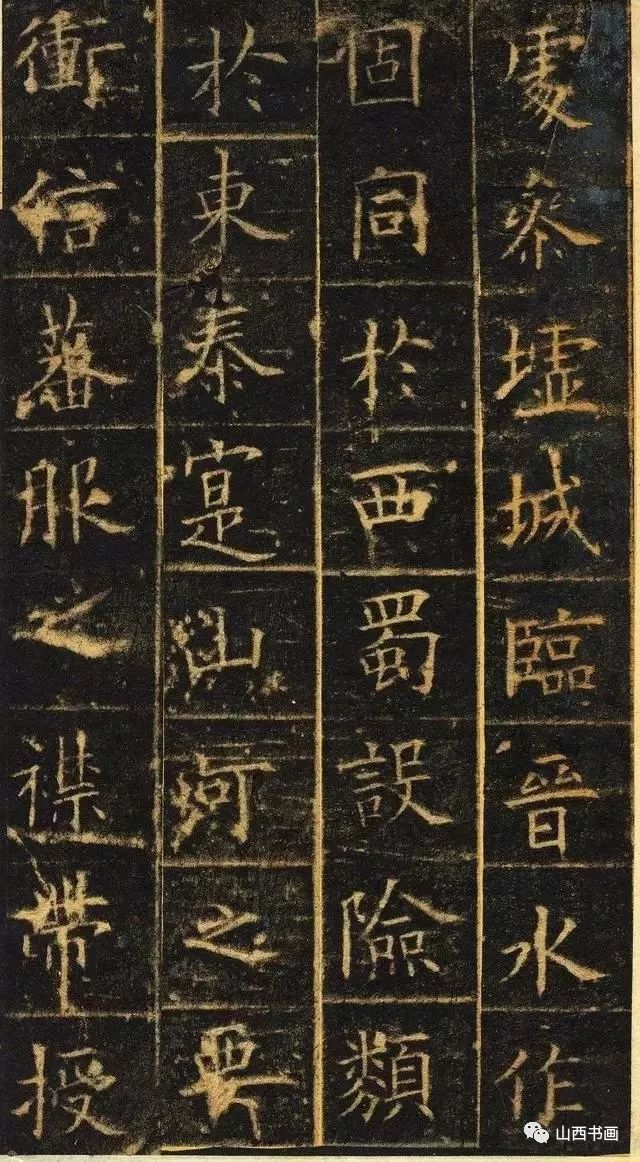 處參墟城臨晉水作
固同於西蜀設險類
於東秦寔山河之要
衝信蕃服之襟帶授
山西书画